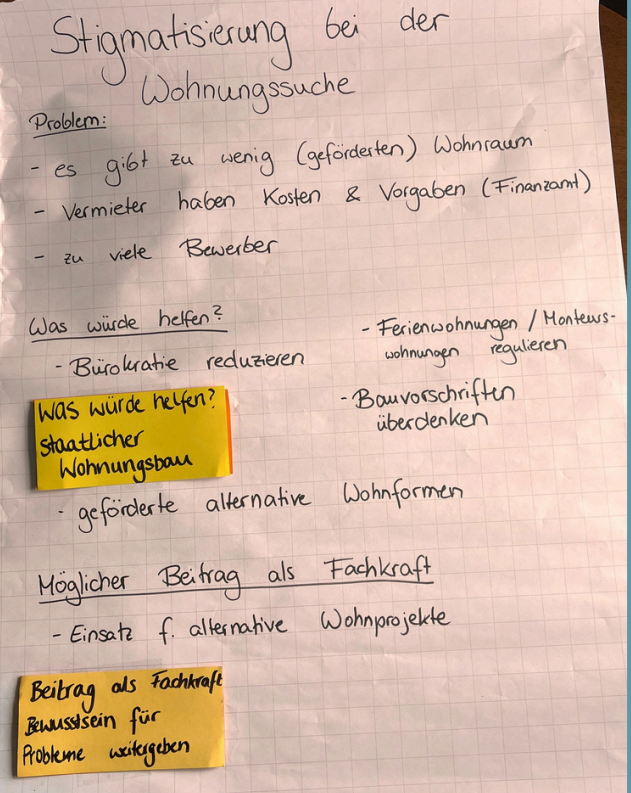 Stigmatisierung bei der
Wohnungssuche
Problem:
- es gibt zu wenig (geförderten) Wohnraum
- Vermieter haben Kosten & Vorgaben (Finanzamt)
- zu viele Bewerber
Was würde helfen?
- Bürokratie reduzieren
Was würde helfen?
staatlicher
Wohnungsbau
- geförderte alternative Wohnformen
- Ferienwohnungen / Monteurs-
wohnungen regulieren
- Bauvorschriften
überdenken
Möglicher Beitrag als Fachkraft
- Einsatz f. alternative Wohnprojekte
Beitrag als Fachkraft
Bewusstsein für
Probleme weitergeben